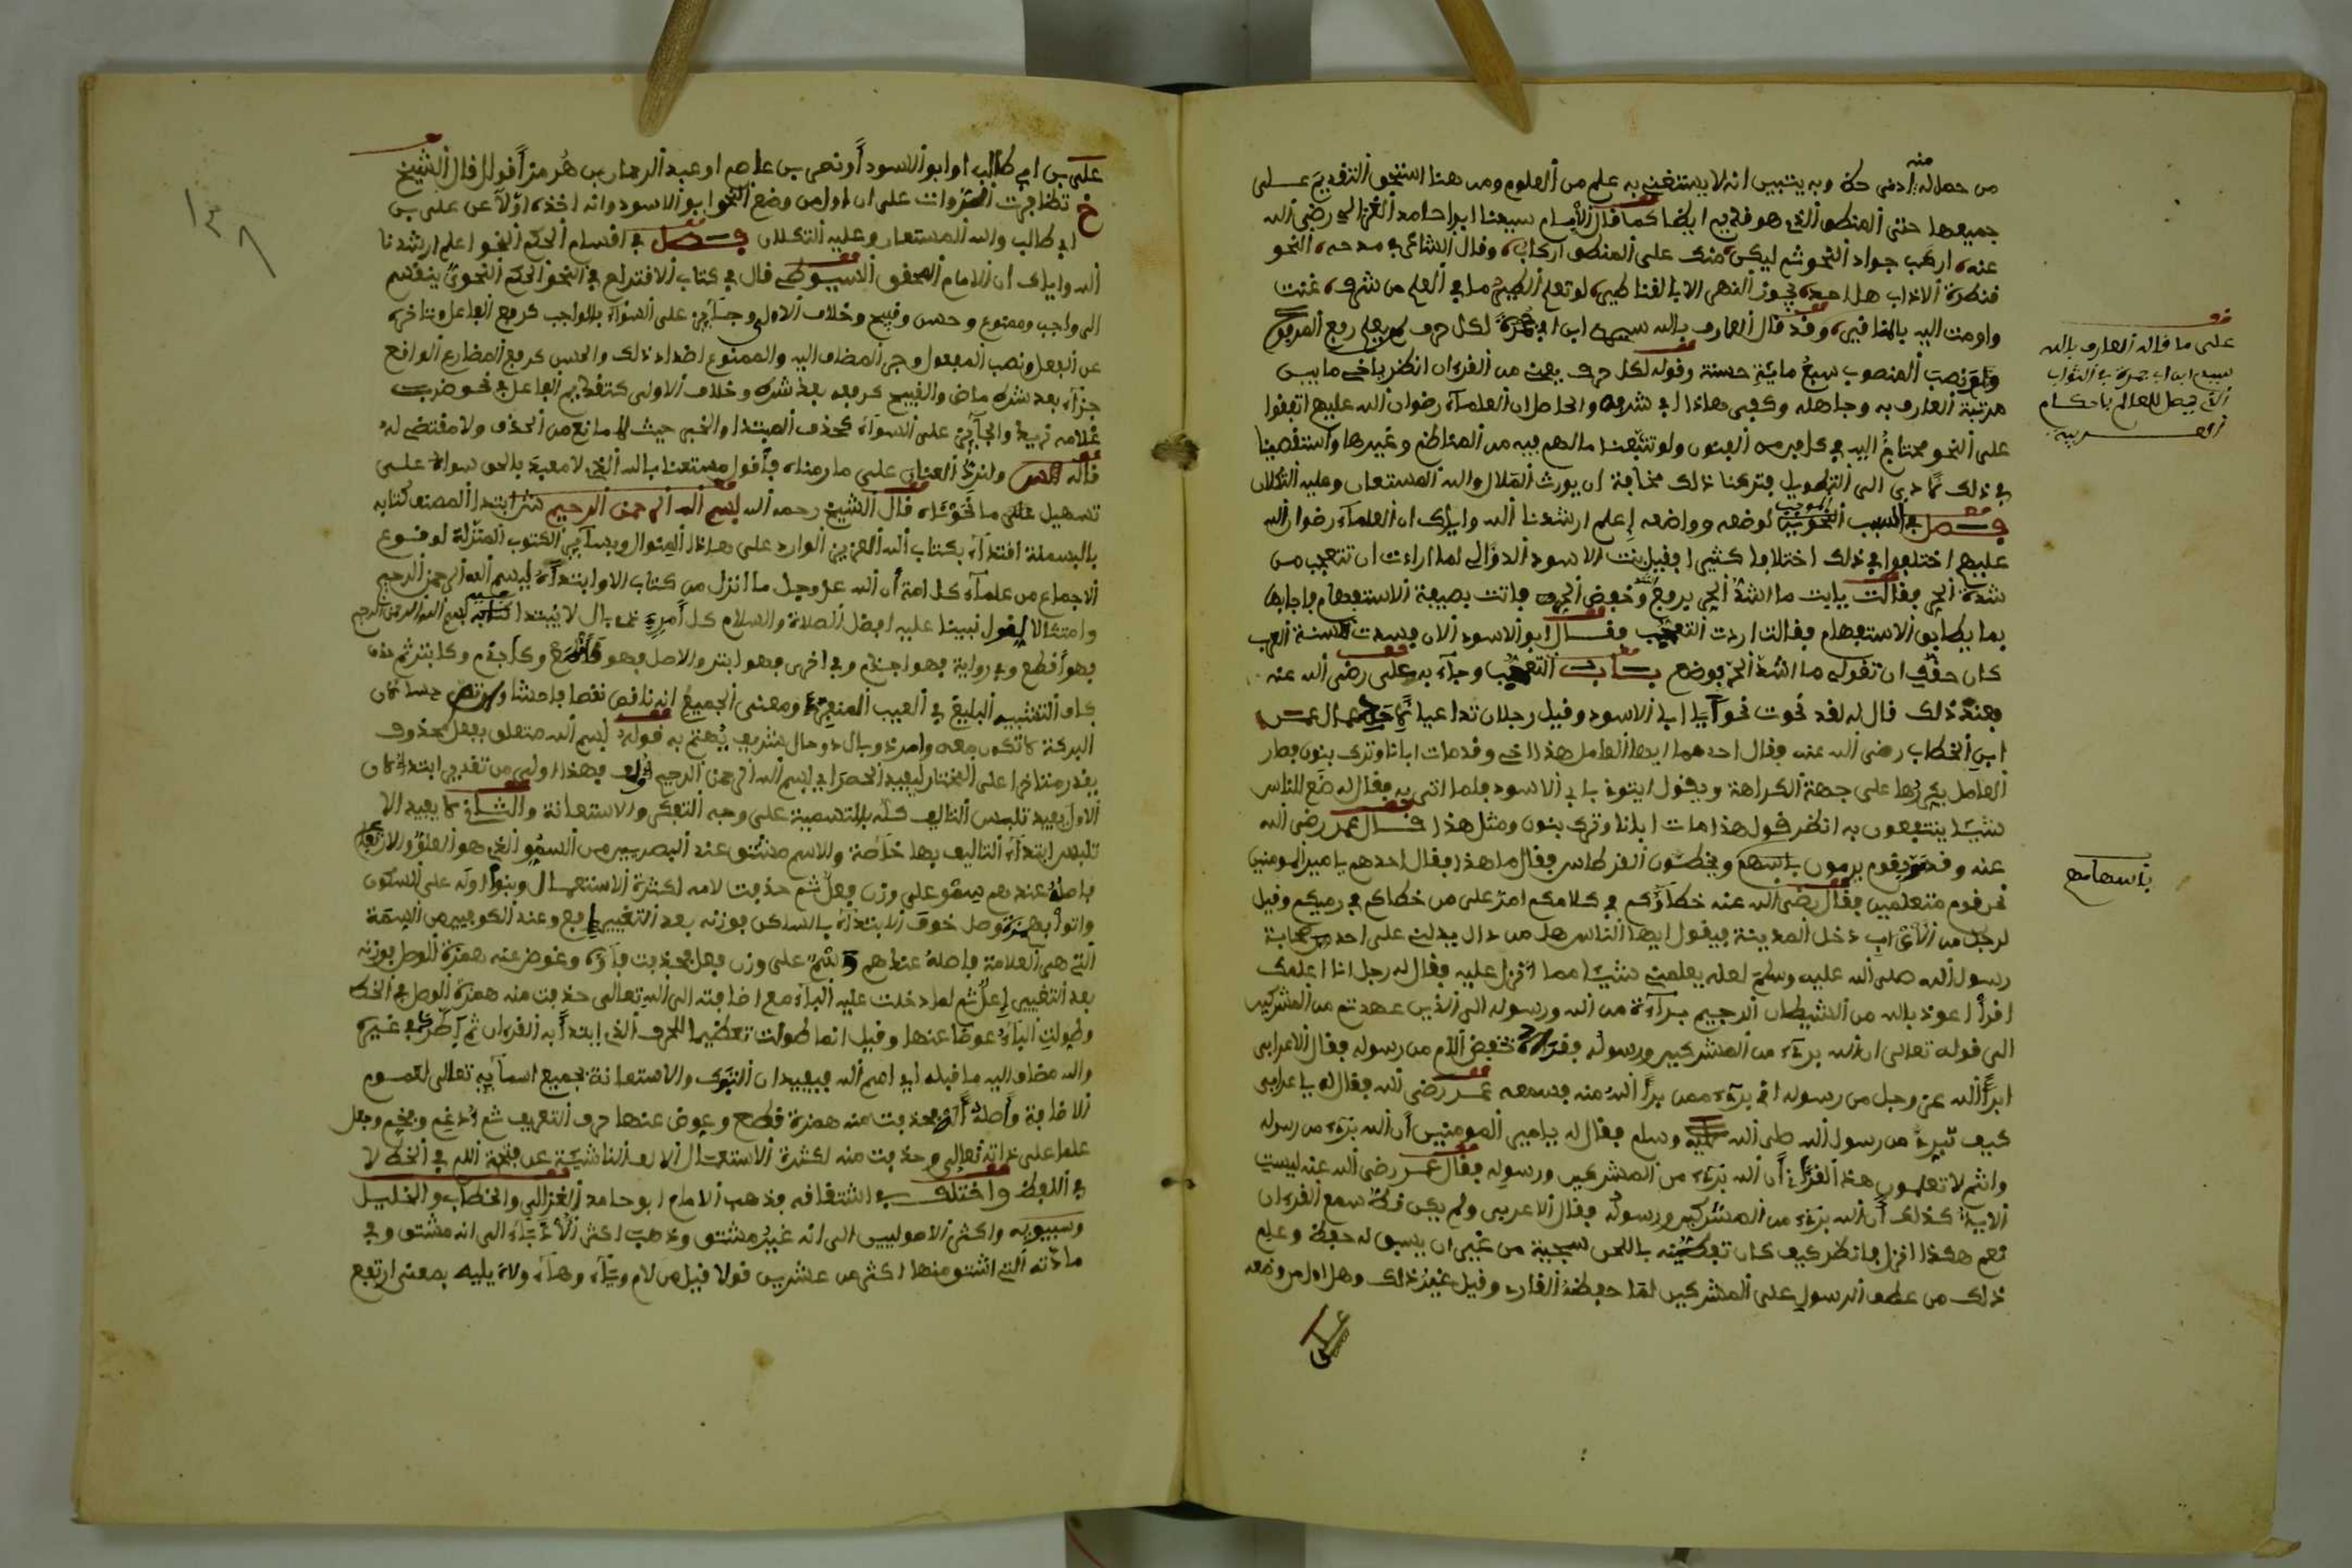 من حصل له منه ادنى حظ وبه يتبين انه لا يستغني به علم من العلوم ومن هنا استحق التقديم على
جميعها حتى المنطق الذي هو فيهم ايضا كما قال الامام سيدنا ابو حامد الغزالي رضي الله
عنه اركب جواد النحو ثم ليكن منك على المنطق اركاب وقال الشاعر في مدحه النحو
قنطرة الاداب هل احد يجوز النهر الا بالقناطير لو تعلم الطير ما في العلم من شرف غنت
واومت اليه بالمناقير وقد قال العارف بالله سيدي ابن ابي جمرة لكل حرف لم يعلم رفع المرفوع
ونصب المنصوب سبع مائة حسنة وقوله لكل حرف يعني من القرءان انظر ياخي ما بين
مرتبة العارف به وجاهله وكفى هاذا في شرفه والحاصل ان العلماء رضوان الله عليهم اتفقوا
على ان النحو محتاج اليه في كل فن من الفنون ولو تتبعنا ما لهم فيه من المناظم وغيرها واستقصينا
في ذلك لادى الى التطويل فتركنا ذلك مخافة ان يورث الملال والله المستعان وعليه التكلان
فصل في السبب الموجب لوضعه وواضعه إعلم ارشدنا الله واياك ان العلماء رضوان الله
عليهم اختلفوا في ذلك اختلافا كثيرا فقيل بنت الاسود الدؤالي لما اراءت ان تتعجب من
شدة الحر فقالت يابت ما اشد الحر برفع اشد وخفض الحر فاتت بصيغة الاستفهام فاجابها
بما يطابق الاستفهام فقالت اردت التعجب فقال ابو الاسود الان فسدت السنة العرب
كان حقك ان تقوله ما اشد الحر فوضع باب التعجب وجاء به على رضي الله عنه
فعند ذلك قال له لقد نحوت نحوا يا ابا الاسود وقيل رجلان تداعيا عمال عمر
ابن الخطاب رضي الله عنه فقال احدهما ايها العامل هذا اخي وقد مات ابانا وترك بنون فصار
العامل يكررها على جهة الكراهة ويقول ايتوني بابي الاسود فلما اتى به فقال له ضع للناس
شيئا ينتفعون به انظر قول هذا مات ابانا وترك بنون ومثل هذا قال عمر رضي الله
عنه وقد مر بقوم يرمون باسهم ويخطئون القرطاس فقال ما هذا فقال احدهم يا امير المومنين
نحن قوم متعلمين فقال رضي الله عنه خطاؤكم في كلامكم امر علي من خطاكم في رميكم وقيل
لرجل من الاعراب دخل المدينة فيقول ايها الناس هل من دال يدلني على احد من صحابة
رسول الله صلى الله عليه وسلم لعله يعلمني شيئا مما انزل عليه فقال له رجل انا اعلمك
اقرأ اعوذ بالله من الشيطان الرجيم براءة من الله ورسوله الى الذين عهدتم من المشركين
الى قوله تعالى ان الله بريء من المشركين ورسوله بخفض اللام من رسوله فقال الاعرابي
ابرأ الله عز وجل من رسوله اني بريء ممن برأ الله منه فسمعه عمر رضي الله فقال له ياعرابي
كيف تبرء من رسول الله صلى الله عليه وسلم فقال له يامير المومنين أن الله بريء من رسوله
وانتم لا تعلمون هذا القرءان أن الله بريء من المشركين ورسوله فقال عمر رضي الله عنه ليست
الاية كذلك أن الله بريء من المشركين ورسوله فقال الاعربي ولم يكن قط سمع القرءان
نعم هكذا انزل فانظر كيف كان تفطنه باللحن سجية من غير ان يسبق له حفظ وعلم
ذلك من عطف الرسول على المشركين لما حفظه القارء وقيل غير ذلك وهل اول من وضعه
علي
على ما قاله العارف بالله
سيدي ابن ابي جمرة في الثواب
الذي يحصل للعالم باحكام
العربية
باسهامهم
١٣٨
علي بن ابي طالب او ابو الاسود أو نصر بن عاصم او عبد الرحمان بن هرمز أقول قال الشيخ
خ تظافرت الروات على ان اول من وضع النحو ابو الاسود وانه اخذه اولا عن علي بن
ابي طالب والله المستعان وعليه التكلان فصل في اقسام الحكم النحو اعلم ارشدنا
الله واياك ان الامام المحقق السيوطي قال في كتاب الاقتراح في النحو الحكم النحوي ينقسم
الى واجب وممنوع وحسن وقبيح وخلاف الاولى وجائز على السواء فالواجب كرفع الفاعل وتاخره
عن الفعل ونصب المفعول وجر المضاف اليه والممنوع اضداد ذلك والحسن كرفع المضارع الواقع
جزاء بعد شرط ماض والقبيح كرفعه بعد شرط وخلاف الاولى كتقديم الفاعل في نحو ضرب
غلامه زيدا والجائز على السواء كحذف المبتدا والخبر حيث لا مانع من الحذف ولا مقتضى له
قاله ولنرد العنان على ما رمناه فأقول مستعنا بالله الذي لا معبد بالحق سواه على
تسهيل ما نحوناه قال الشيخ رحمه الله بسم الله الرحمن الرحيم ش ابتدا المصنف كتابه
بالبسملة اقتداء بكتاب الله العزيز الوارد على هاذا المنوال وبسائر الكتوب المنزلة لوقوع
الاجماع من علماء كل امة أن الله عز وجل ما انزل من كتاب الا وابتداه ببسم الله الرحمن الرحيم
وامتثالا لقول نبينا عليه افضل الصلاة والسلام كل أمر ذي بال لا يبتدا فيه ببسم الله الرحمن الرحيم
فهو أقطع وفي رواية فهو اجذم وفي اخرى فهو ابتر والاصل فهو كأقطع وكأجذم وكابتر ثم حذف
كاف التشبيه البليغ في العيب المنفر ومعنى الجميع انه ناقص نقصا فاحشا
البركة لا تكون معه وامر ذو بال ذو حال شريف يُهتم به قوله بسم الله متعلق بفعل محذوف
يقدر متاخرا على المختار ليفيد الحصر اي بسم الله الرحمن الرحيم فهذا اولى من تقدير ابتدا لان
الاول يفيد تلبس التاليف كله بالتسمية على وجه التبرك والاستعانة والثاني لا يفيد الا
تلبس ابتداء التاليف بها خاصة والاسم مشتق عند البصريين من السمو الذي هو العلو والارتفاع
فاصله عندهم سمو على وزن فعل ثم حذفت لامه لكثرة الاستعمال وبنو اوله على السكون
واتوا بهمزة وصل خوف الابتداء بالساكن فوزنه بعد التغيير افع وعند الكوفيين من السمة
التي هي العلامة فاصله عندهم وسم على وزن فعل فحذفت فاؤه وعوض عنه همزة الوصل فوزنه
بعد التغيير إعل ثم لما دخلت عليه الباء مع اضافته الى الله تعالى حذفت منه همزة الوصل في الخط
وطولت الباء عوضا عنها وقيل انما طولت تعظيما للحرف الذي إبتدأ به القرءان ثم في غيره
والله مضاف اليه ما قبله اي اسم الله فيفيد ان التبرك والاستعانة بجميع اسمائه تعالى لعموم
الاضافة وأصله فحذفت منه همزة قطع وعوض عنها حرف التعريف ثم أدغم وفخم وجعل
علما على ذاته تعالى وحذفت منه لكثرة الاستعمال الالف الناشئة عن فتحة اللام في الخط لا
في اللفظ واختلف في اشتقاقه فذهب الامام ابو حامد الغزالي والخطاب والخليل
وسيبويه واكثر الاصوليين الى انه غير مشتق وذهب اكثر الادباء الى انه مشتق وفي
مادته التي اشتق منها اكثر من عشرين قولا قيل من لام وياء وهاء ولاه يليه بمعنى ارتفع